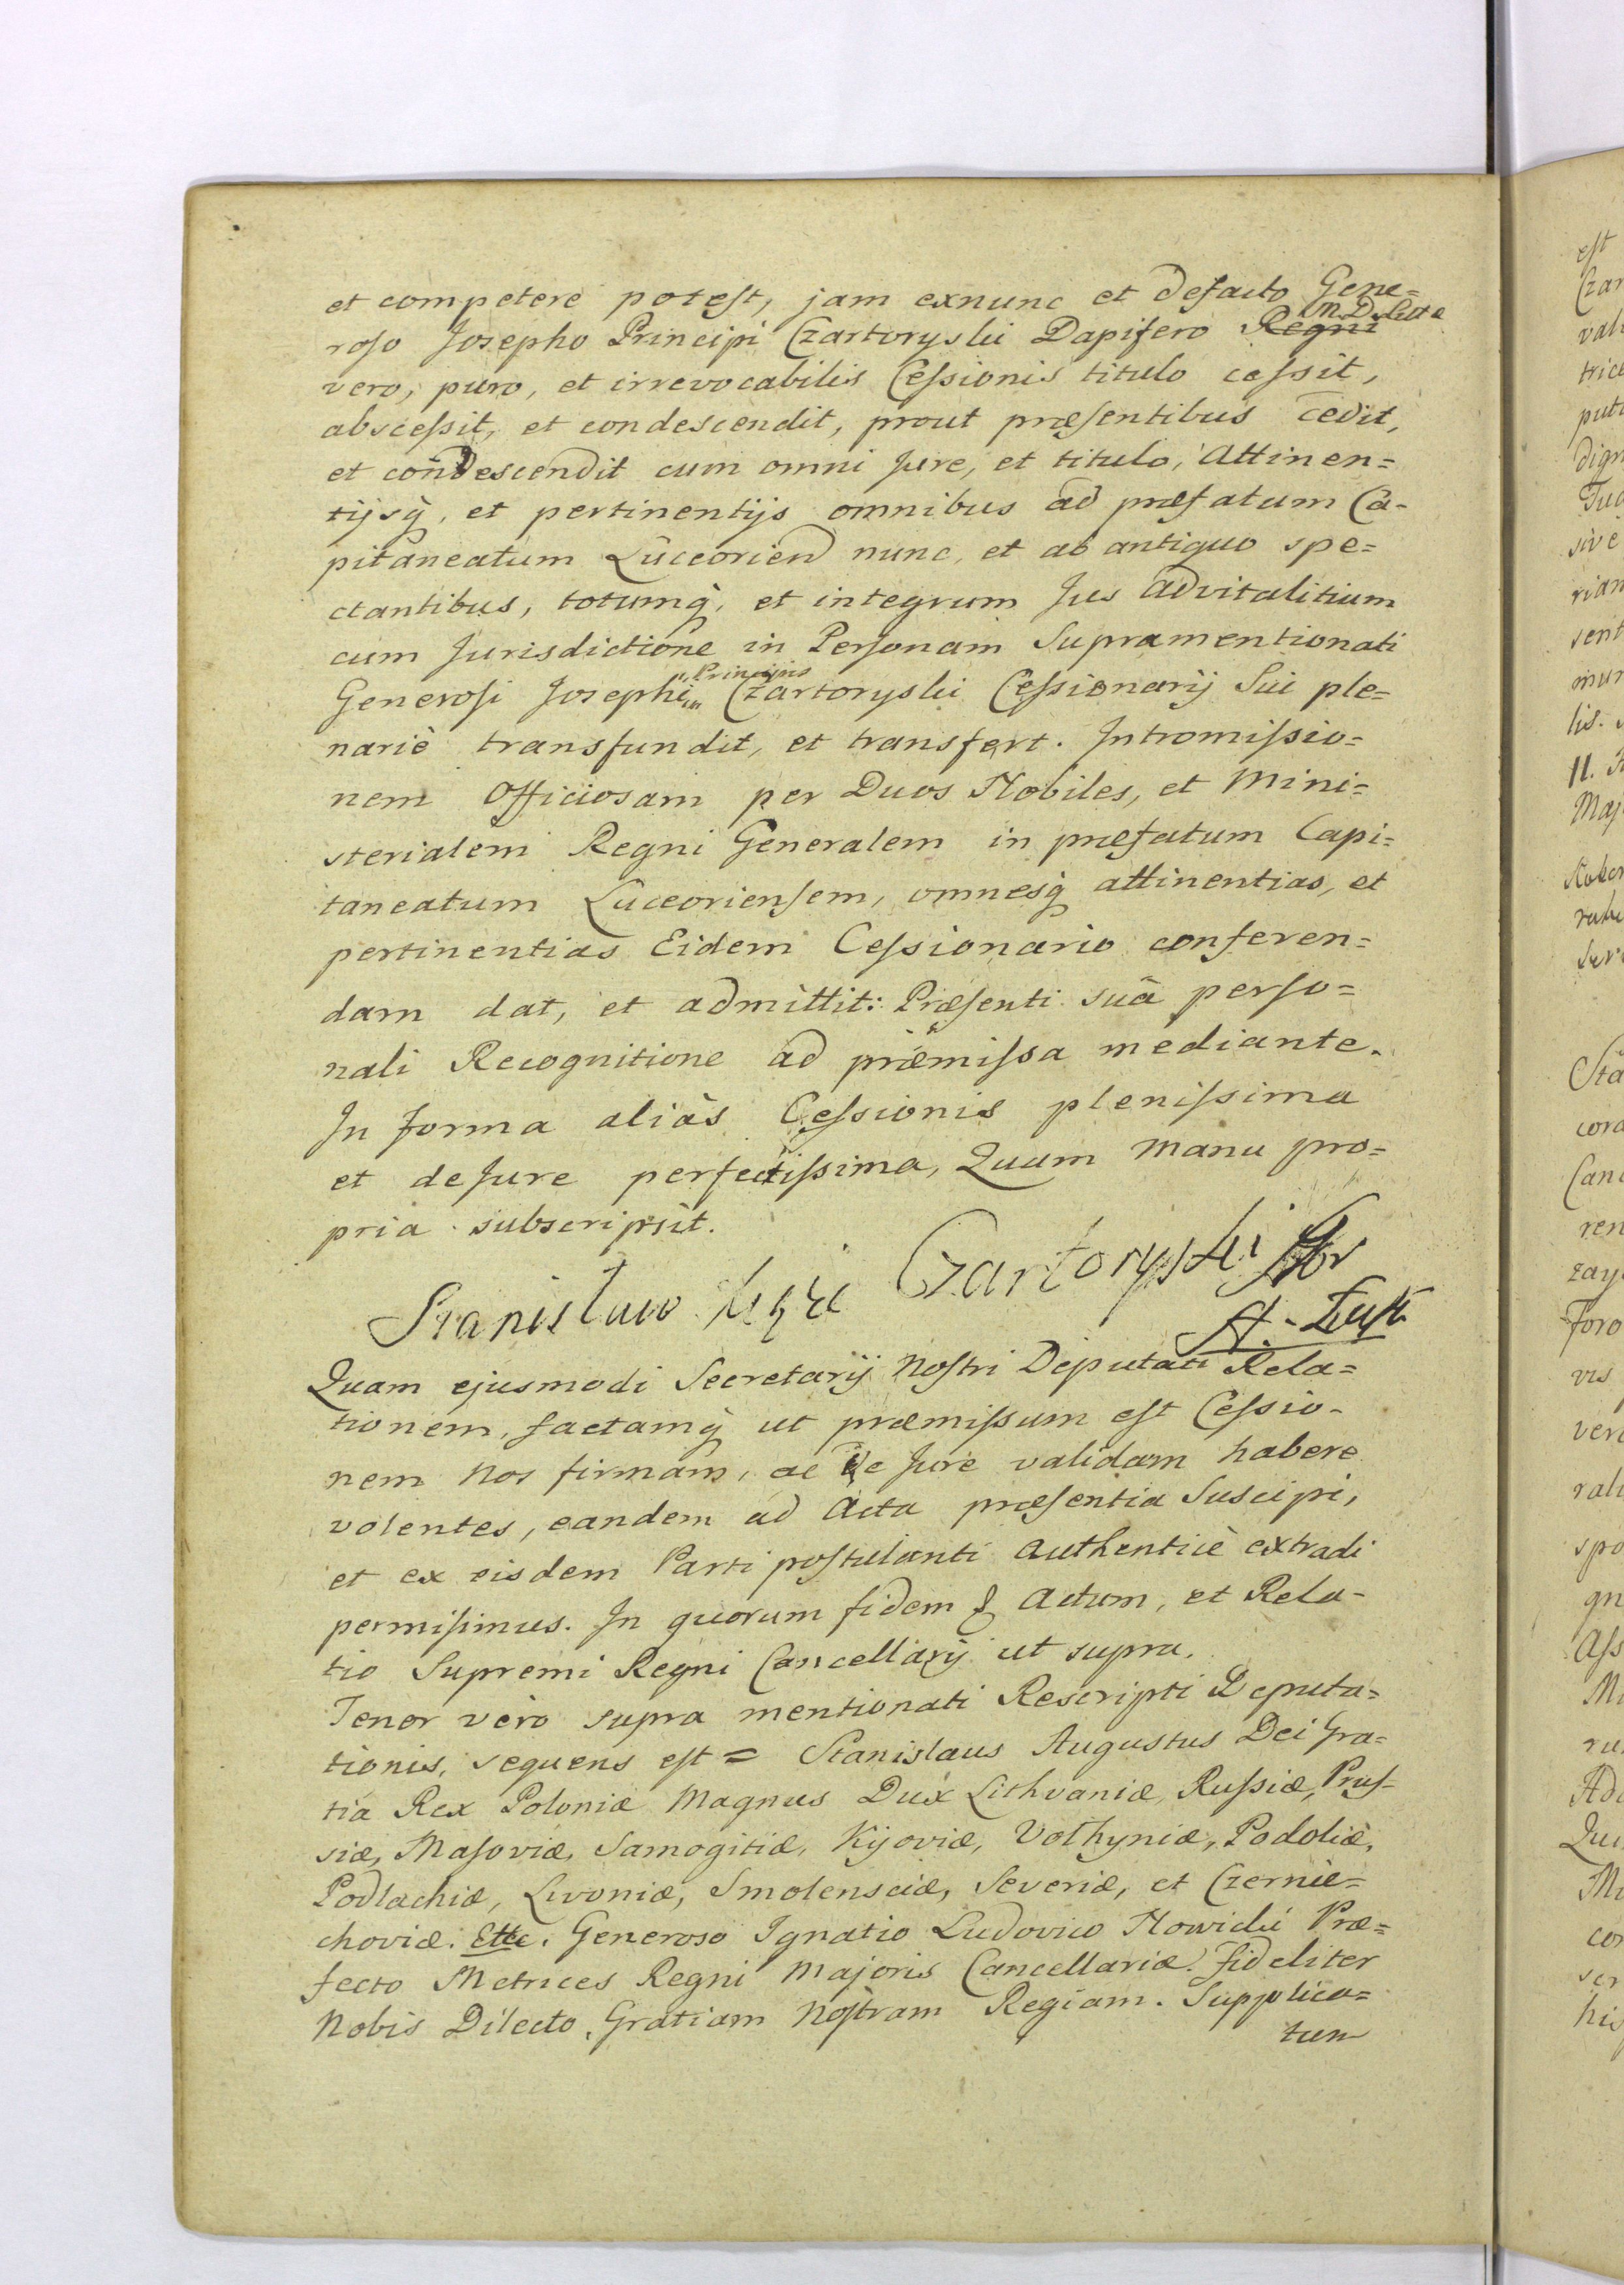 et competere potest, jam exnunc et defacto Gene=
roso Josepho Principi Czartoryski Dapifero Regni M. D. Litt
vero, puro, et irrevocabilis Cessionis titulo cessit,
abscessit, et condescendit, prout præsentibus cedit,
et condescendit cum omni Jure, et titulo, Attinen=
tijsq̀, et pertinentijs omnibus ad præfatum Ca-
pitaneatum Luceorien nunc, et ab antiquo spe=
ctantibus, totumq̀, et integrum Jus advitalitium
cum Jurisdictione in Personam Supramentionati
Generosi Josephi Principis Czartoryski Cessionarij Sui ple=
nariè transfundit, et transfert. Intromissio=
nem Officiosam per Duos Nobiles, et Mini=
sterialem Regni Generalem in præfatum Capi=
taneatum Luceoriensem, omnesq̀ attinentias, et
pertinentias Eidem Cessionario conferen=
dam dat, et admittit: Præsenti suâ perso=
nali Recognitione ad præmissa mediante.
In forma aliàs Cessionis plenissima
et de Jure perfectissima, Quam Manu pro=
pria subscripsit.
Stanisław Czartoryski
Quam ejusmodi Secretarij Nostri Deputati Rela=
tionem, factamq̀ ut præmissum est Cessio-
nem Nos firmam, ac de Jure validam habere
volentes, eandem ad Acta præsentia Suscipi,
et ex eisdem Parti postulanti Authenticè extradi
permisimus. In quorum fidem & Actum, et Rela-
tio Supremi Regni Cancellarij ut supra.
Tenor verò supra mentionati Rescripti Deputa=
tionis, sequens est = Stanislaus Augustus Dei Gra=
tia Rex Poloniæ Magnus Dux Lithvaniæ, Russiæ, Prus-
siæ, Masoviæ, Samogitiæ, Kijoviæ, Volhyniæ, Podoliæ,
Podlachiæ, Livoniæ, Smolensciæ, Severiæ, et Czernie=
choviæ. Ettc. Generoso Ignatio Ludovico Nowicki Præ=
fecto Metrices Regni Majoris Cancellariæ. fideliter
Nobis Dilecto, Gratiam Nostram Regiam. Supplica=
tum